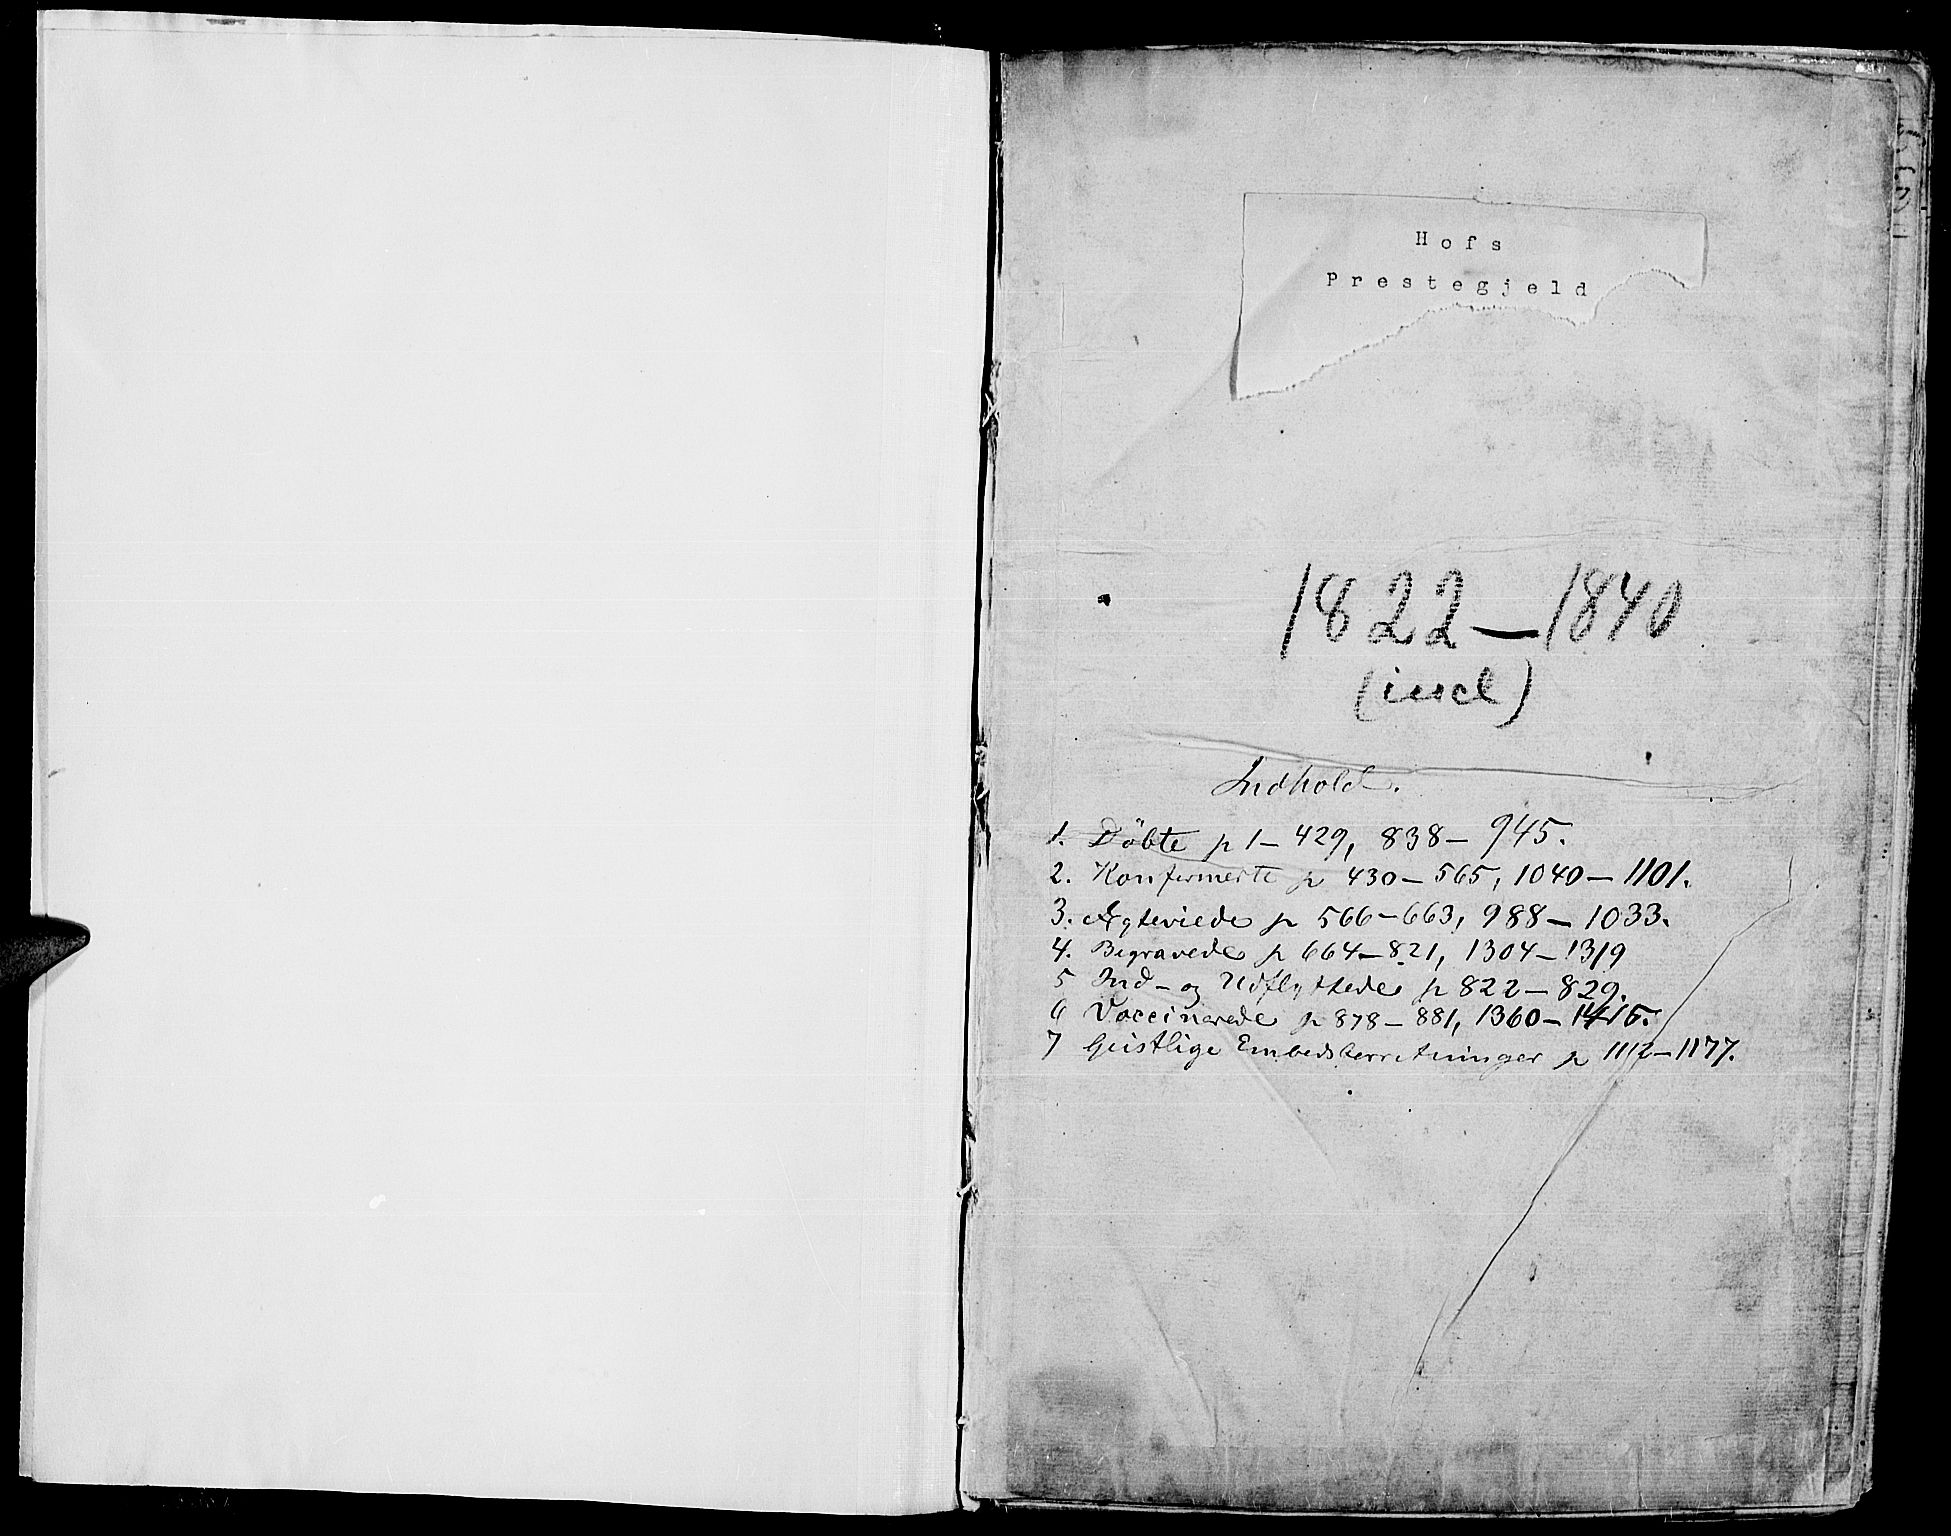 Hofs
Prestegjeld
1822 — 1840
(incl)
Indhold.
1. Döbte p 1 – 429, 838 – 945.
2. Konfermerte p 430 – 565, 1040 – 1101.
3. Ægteviede p 566 – 663, 988 – 1033.
4. Begravede p 664 – 821, 1304 – 1319
5 Ind – og Udflyttede p 822 – 829.
6 Vaccinerede p 878 – 881, 1360 – 1415.
7 Geistlige Embedsforretninger p 1112 – 1177.